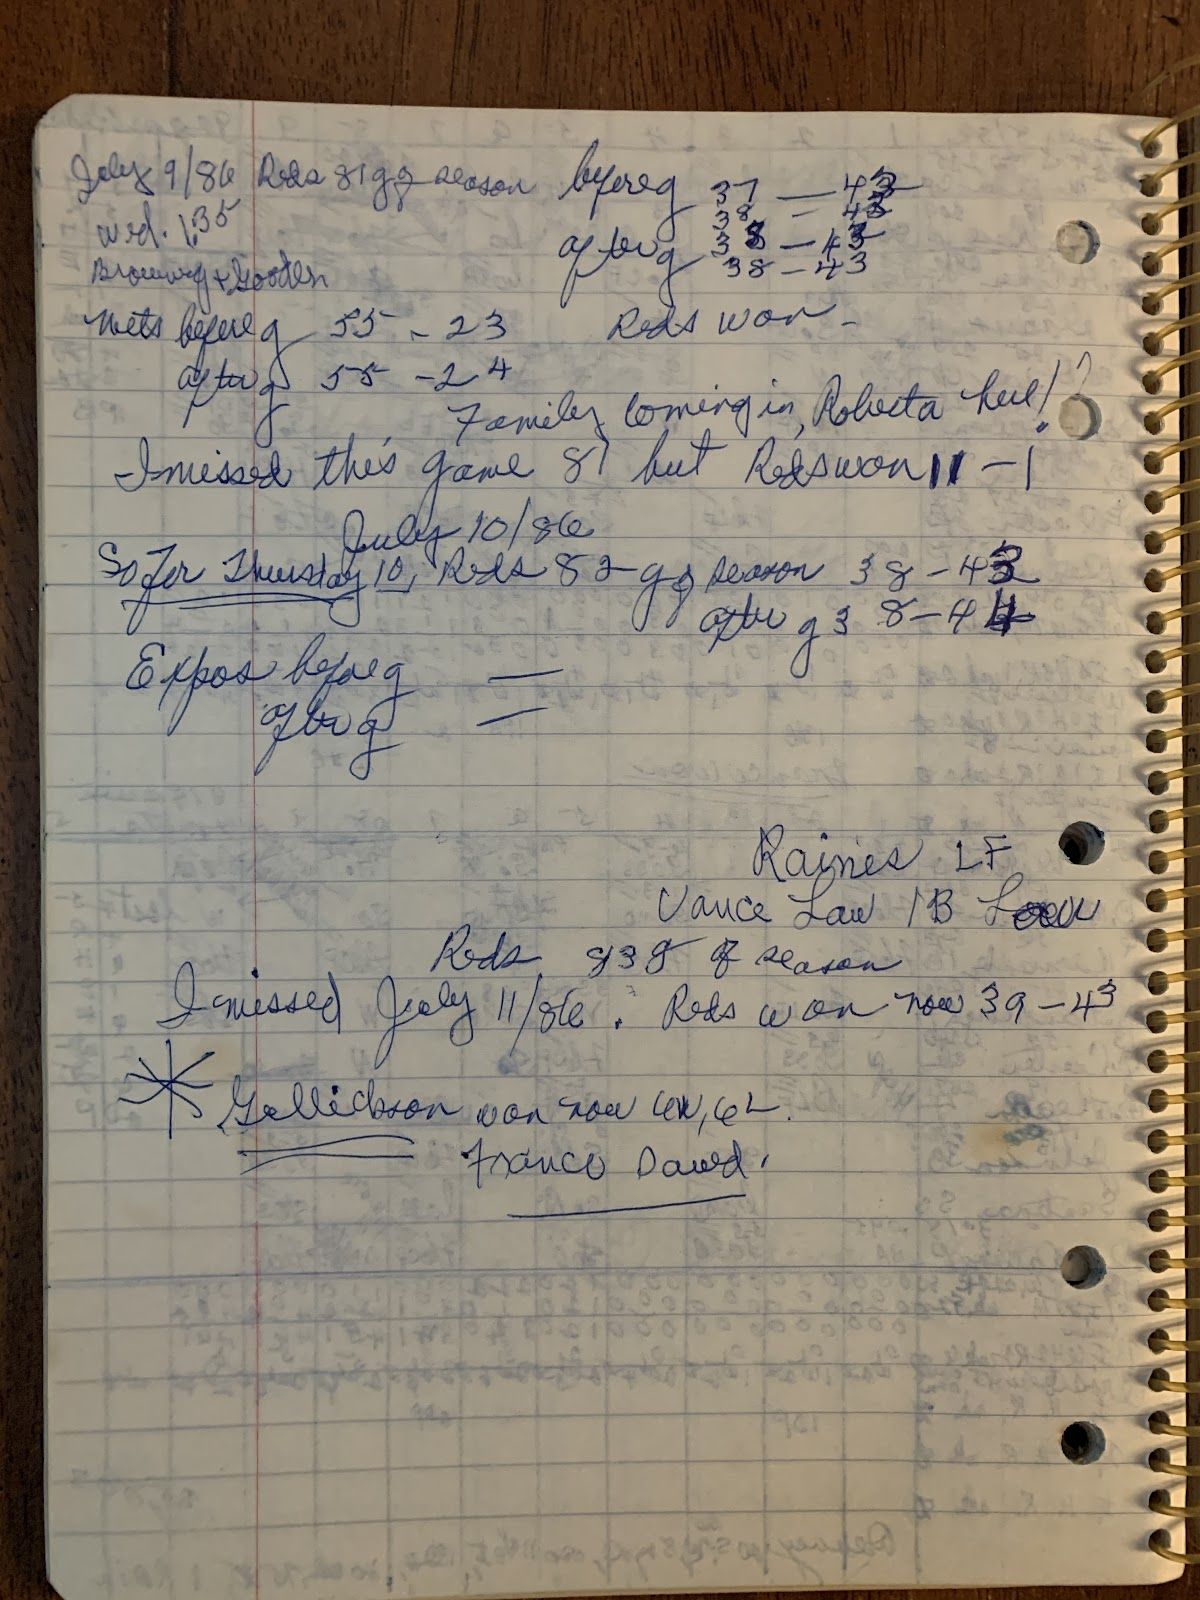 July 9/86 Reds 81 g of season before g 37 — 43
38 — 43
Wed. 1:35 after g 38 — 43
38 — 43
Browning & Gooden
Mets before g 55 - 23 Reds won -
after g 55 - 24
Family coming in, Roberta here!?
I missed this game 81 but Reds won 11 - 1
July 10/86
So For Thursday 10, Reds 82 g of season 38 - 43
after g 38 - 44
Expos before g —
after g —
Raines LF
Vance Law 1B
Reds 83 g of season
I missed July 11/86. Reds won now 39 - 43
* Gullickson won now 6W, 6L.
Franco